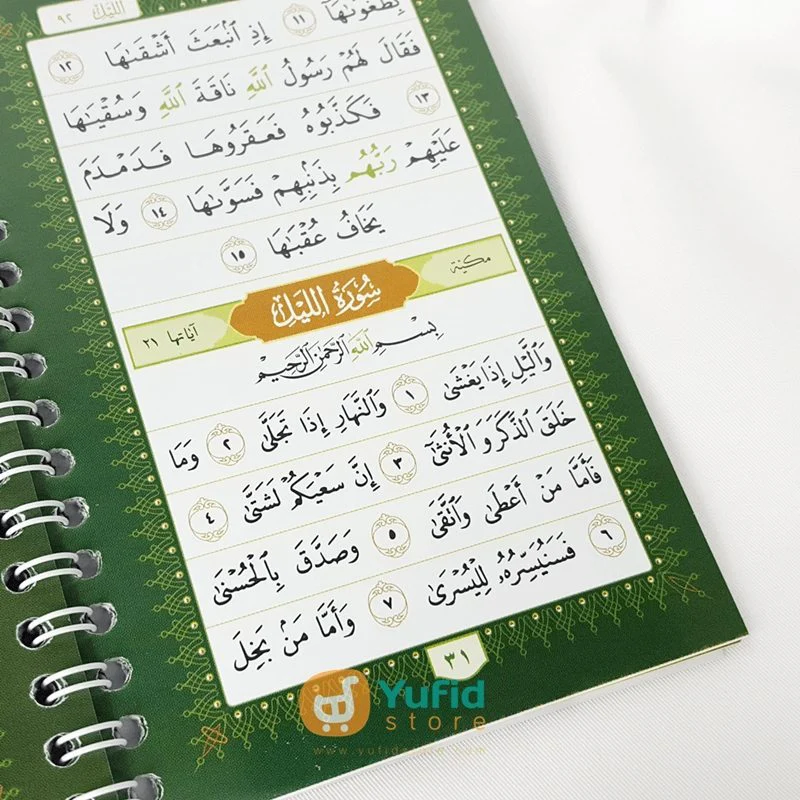 الليل ٩٢
بِطَغْوَىٰهَآ ١١ إِذِ ٱنۢبَعَثَ أَشْقَىٰهَا ١٢
فَقَالَ لَهُمْ رَسُولُ ٱللَّهِ نَاقَةَ ٱللَّهِ وَسُقْيَـٰهَا
١٣ فَكَذَّبُوهُ فَعَقَرُوهَا فَدَمْدَمَ
عَلَيْهِمْ رَبُّهُم بِذَنۢبِهِمْ فَسَوَّىٰهَا ١٤ وَلَا
يَخَافُ عُقْبَـٰهَا ١٥
مكية سُورَةُ اللَّيْلِ آياتها ٢١
بِسْمِ ٱللَّهِ ٱلرَّحْمَـٰنِ ٱلرَّحِيمِ
وَٱلَّيْلِ إِذَا يَغْشَىٰ ١ وَٱلنَّهَارِ إِذَا تَجَلَّىٰ ٢ وَمَا
خَلَقَ ٱلذَّكَرَ وَٱلْأُنثَىٰٓ ٣ إِنَّ سَعْيَكُمْ لَشَتَّىٰ ٤
فَأَمَّا مَنْ أَعْطَىٰ وَٱتَّقَىٰ ٥ وَصَدَّقَ بِٱلْحُسْنَىٰ
٦ فَسَنُيَسِّرُهُۥ لِلْيُسْرَىٰ ٧ وَأَمَّا مَنۢ بَخِلَ
٣١
Yufid
store
www.yufidstore.com